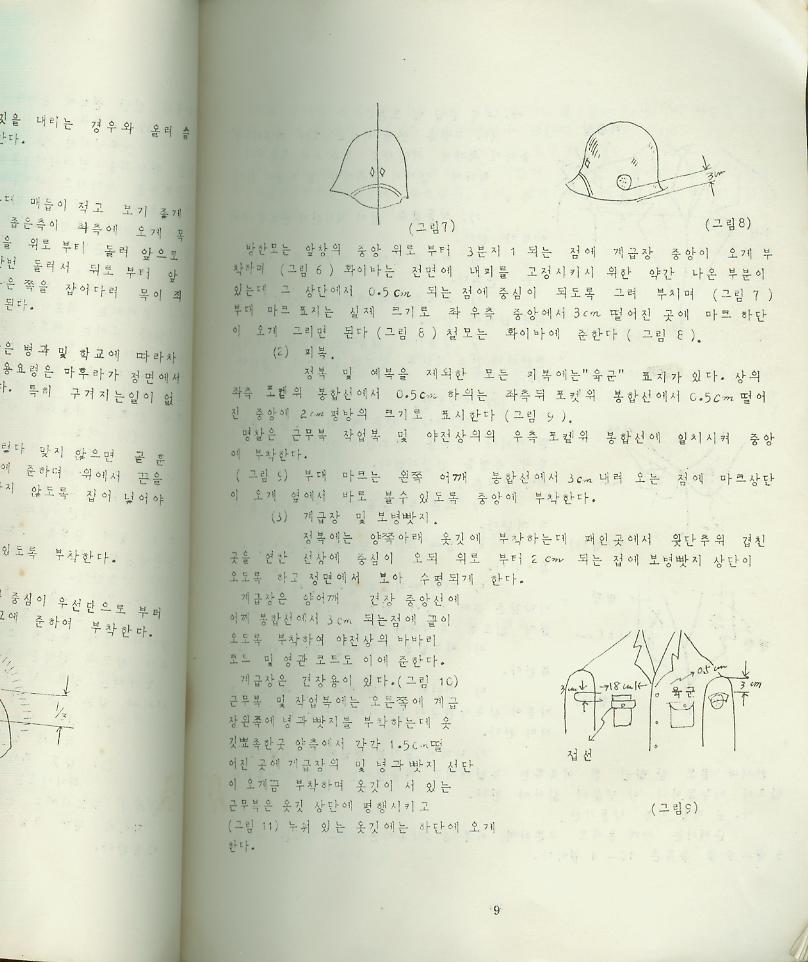 짓을 내리는 경우와 올려 솔
한다.
매듭이 적고 보기 좋게
좁은측이 좌측에 오게 목
을 위로 부터 둘러 앞으로
한번 둘러서 뒤로 부터 앞
은 쪽을 잡어다려 목이 죄
된다.
은 병과 및 학교에 따라차
용요령은 마후라가 정면에서
다. 특히 구겨지는일이 없
맞지 않으면 끝
에 준하며 위에서 끈을
지 않도록 집어 넣어야
있도록 부착한다.
중심이 우선단으로 부터
고에 준하여 부착한다.
1/2
(그림7)
3cm
(그림8)
방한모는 앞창의 중앙 위로 부터 3분지 1 되는 점에 계급장 중앙이 오게 부
착하며 (그림 6) 화이바는 전면에 내피를 고정시키시 위한 약간 나온 부분이
있는데 그 상단에서 0.5cm 되는 점에 중심이 되도록 그려 부치며 (그림 7)
부대 마크 표지는 실제 크기로 좌 우측 중앙에서 3cm 떨어진 곳에 마크 하단
이 오게 그리면 된다 (그림 8) 철모는 화이바에 준한다 (그림 8).
(2) 피복.
정복 및 예복을 제외한 모든 피복에는 "육군" 표지가 있다. 상의
좌측 포켙위 봉합선에서 0.5cm 하의는 좌측뒤 포켓위 봉합선에서 0.5cm 떨어
진 중앙에 2cm 평방의 크기로 표시한다 (그림 9).
명찰은 근무복 작업복 및 야전상의의 우측 포켙위 봉합선에 일치시켜 중앙
에 부착한다.
(그림 9) 부대 마크는 왼쪽 어깨 봉합선에서 3cm 내려 오는 점에 마크상단
이 오게 옆에서 바로 볼수 있도록 중앙에 부착한다.
(3) 계급장 및 보병빳지.
정복에는 양쪽아래 옷깃에 부착하는데 패인곳에서 윗단추위 겹친
곳을 연한 선상에 중심이 오되 위로 부터 2cm 되는 접에 보병빳지 상단이
오도록 하고 정면에서 보아 수평되게 한다.
계급장은 양어깨 견장 중앙선에
어깨 봉합선에서 3cm 되는점에 끝이
오도록 부착하여 야전상의 바바리
코트 및 영관 코트도 이에 준한다.
계급장은 견장용이 있다. (그림 10)
근무복 및 작업복에는 오른쪽에 계급
장왼쪽에 병과빳지를 부착하는데 옷
깃뾰족한곳 양측에서 각각 1.5cm떨
어진 곳에 계급장의 및 병과빳지 선단
이 오게끔 부착하며 옷깃이 서 있는
근무복은 옷깃 상단에 평행시키고
(그림 11) 누워 있는 옷깃에는 하단에 오게
한다.
3cm
1.8cm
0.5cm
육군
3cm
접선
(그림9)
9